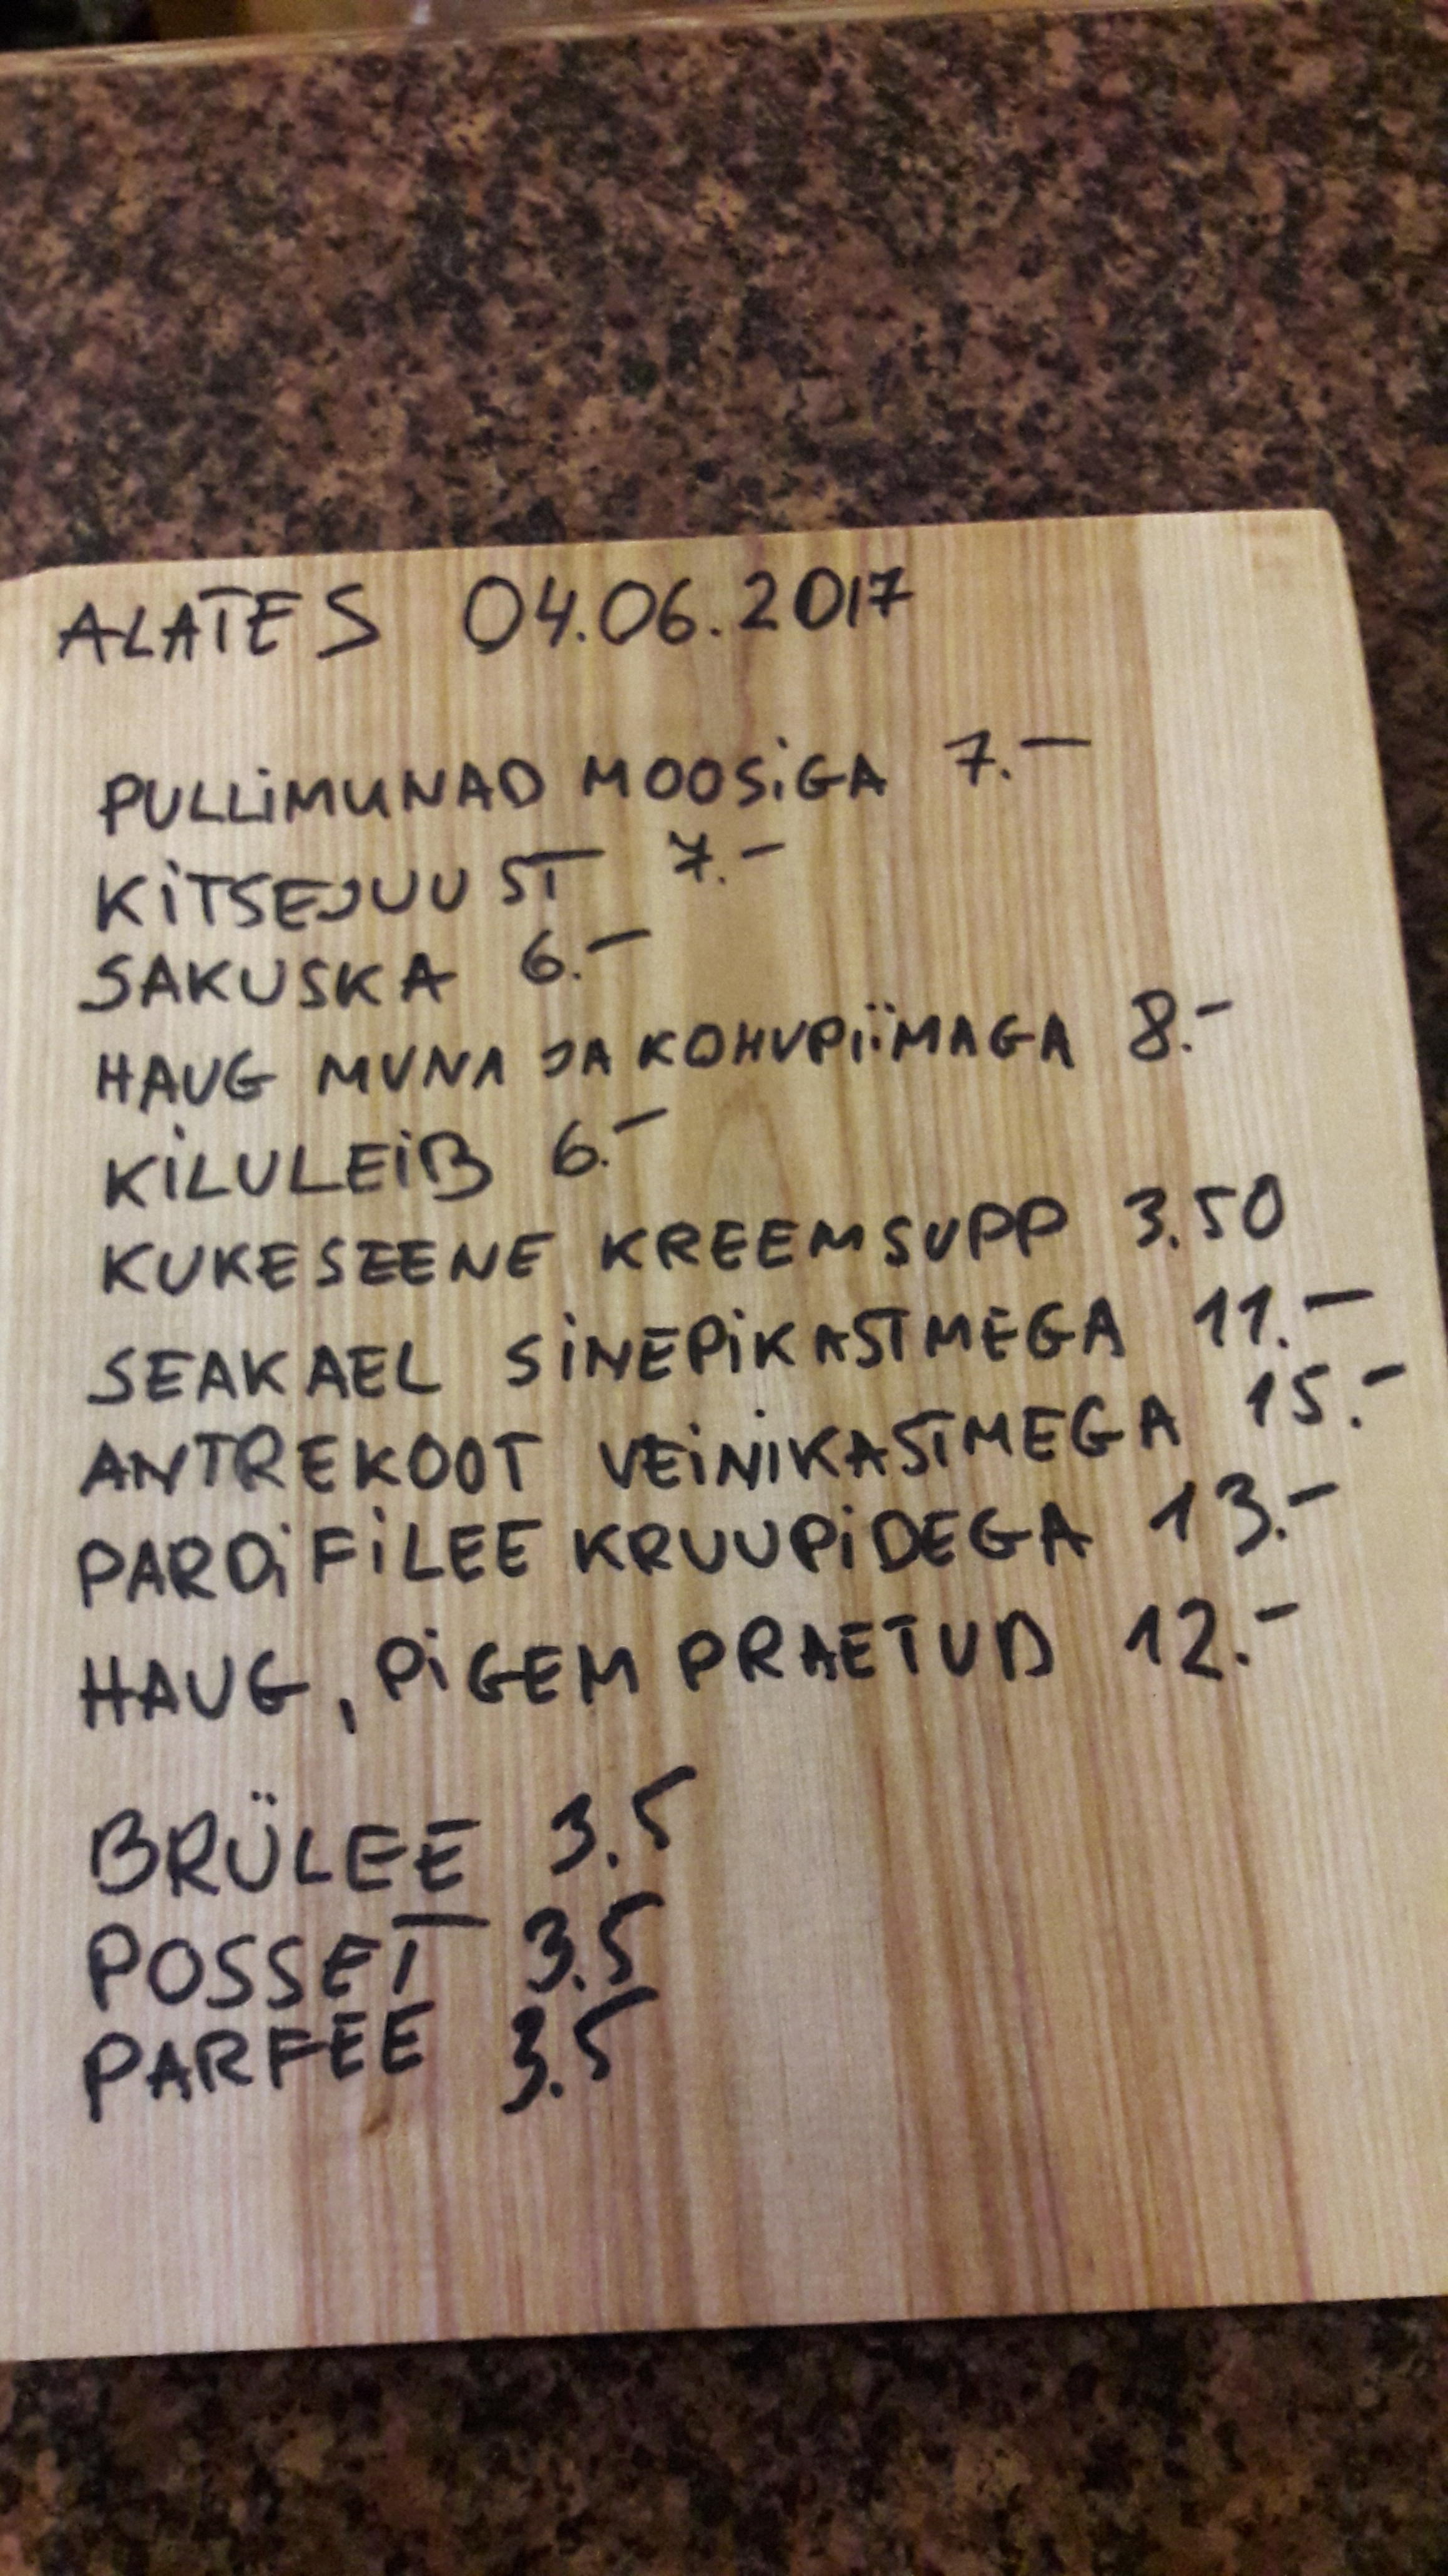 ALATES 04.06.2017
PULLIMUNAD MOOSIGA 7.-
KITSEJUUST 7.-
SAKUSKA 6.-
HAUG MUNA JA KOHUPIIMAGA 8.-
KILULEIB 6.-
KUKESEENE KREEMSUPP 3.50
SEAKAEL SINEPIKASTMEGA 11.-
ANTREKOOT VEINIKASTMEGA 15.-
PARDIFILEE KRUUPIDEGA 13.-
HAUG, PIGEM PRAETUD 12.-
BRÜLEE 3.5
POSSET 3.5
PARFEE 3.5